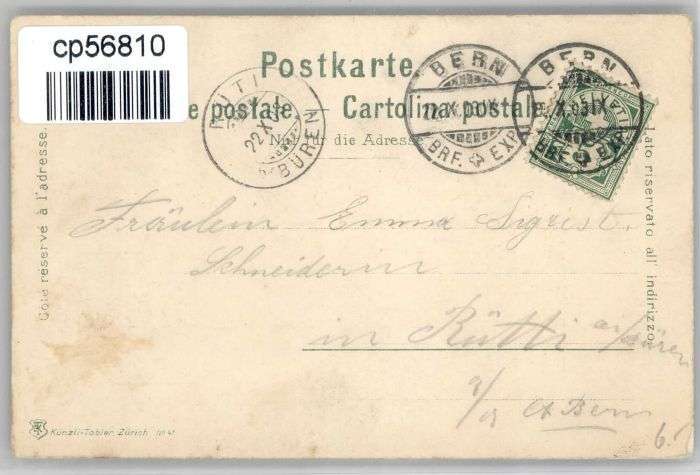 cp56810
Postkarte
e postale – Cartolina postale
Nur für die Adresse
RÜTI
22 X
BÜREN
BERN
22.X.
BRF. EXP.
BERN
X
BRF. EXP.
Côté réservé à l'adresse.
Lato riservato all' indirizzo.
Fräulein Emma Sigrist
Schneiderin
in Rütti a/Büren
Ct Bern
6.
Künzli-Tobler, Zürich No 41